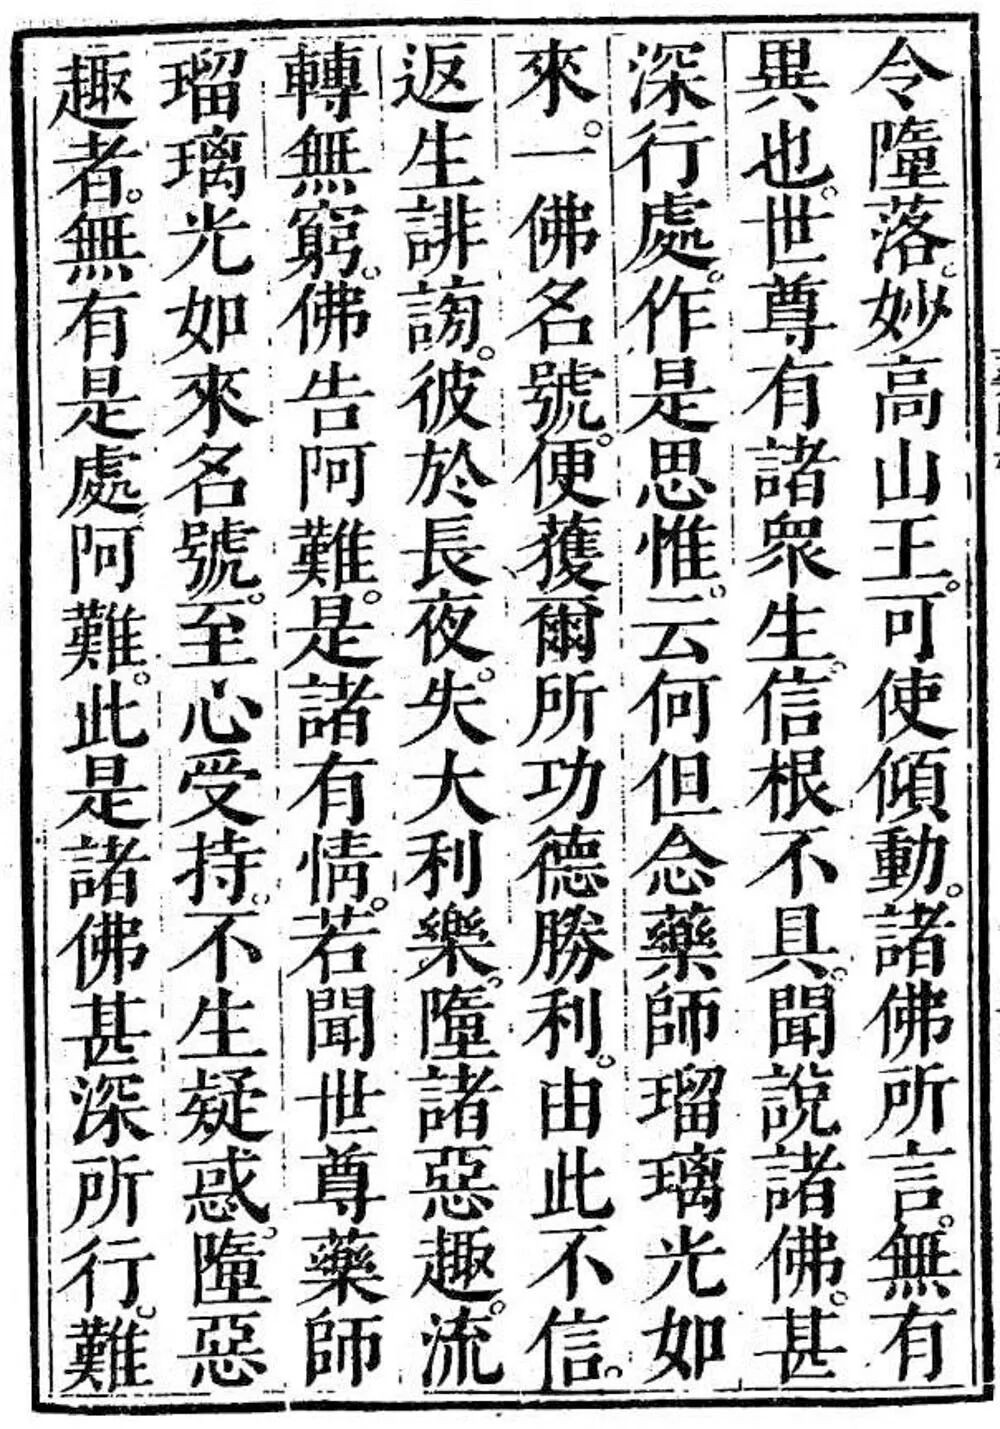 令墮落。妙高山王。可使傾動。諸佛所言。無有
異也。世尊有諸衆生。信根不具。聞說諸佛。甚
深行處。作是思惟。云何但念藥師瑠璃光如
來。一佛名號。便獲爾所功德勝利。由此不信。
返生誹謗。彼於長夜。失大利樂。墮諸惡趣。流
轉無窮。佛告阿難。是諸有情。若聞世尊藥師
瑠璃光如來名號。至心受持。不生疑惑。墮惡
趣者。無有是處。阿難。此是諸佛甚深所行。難